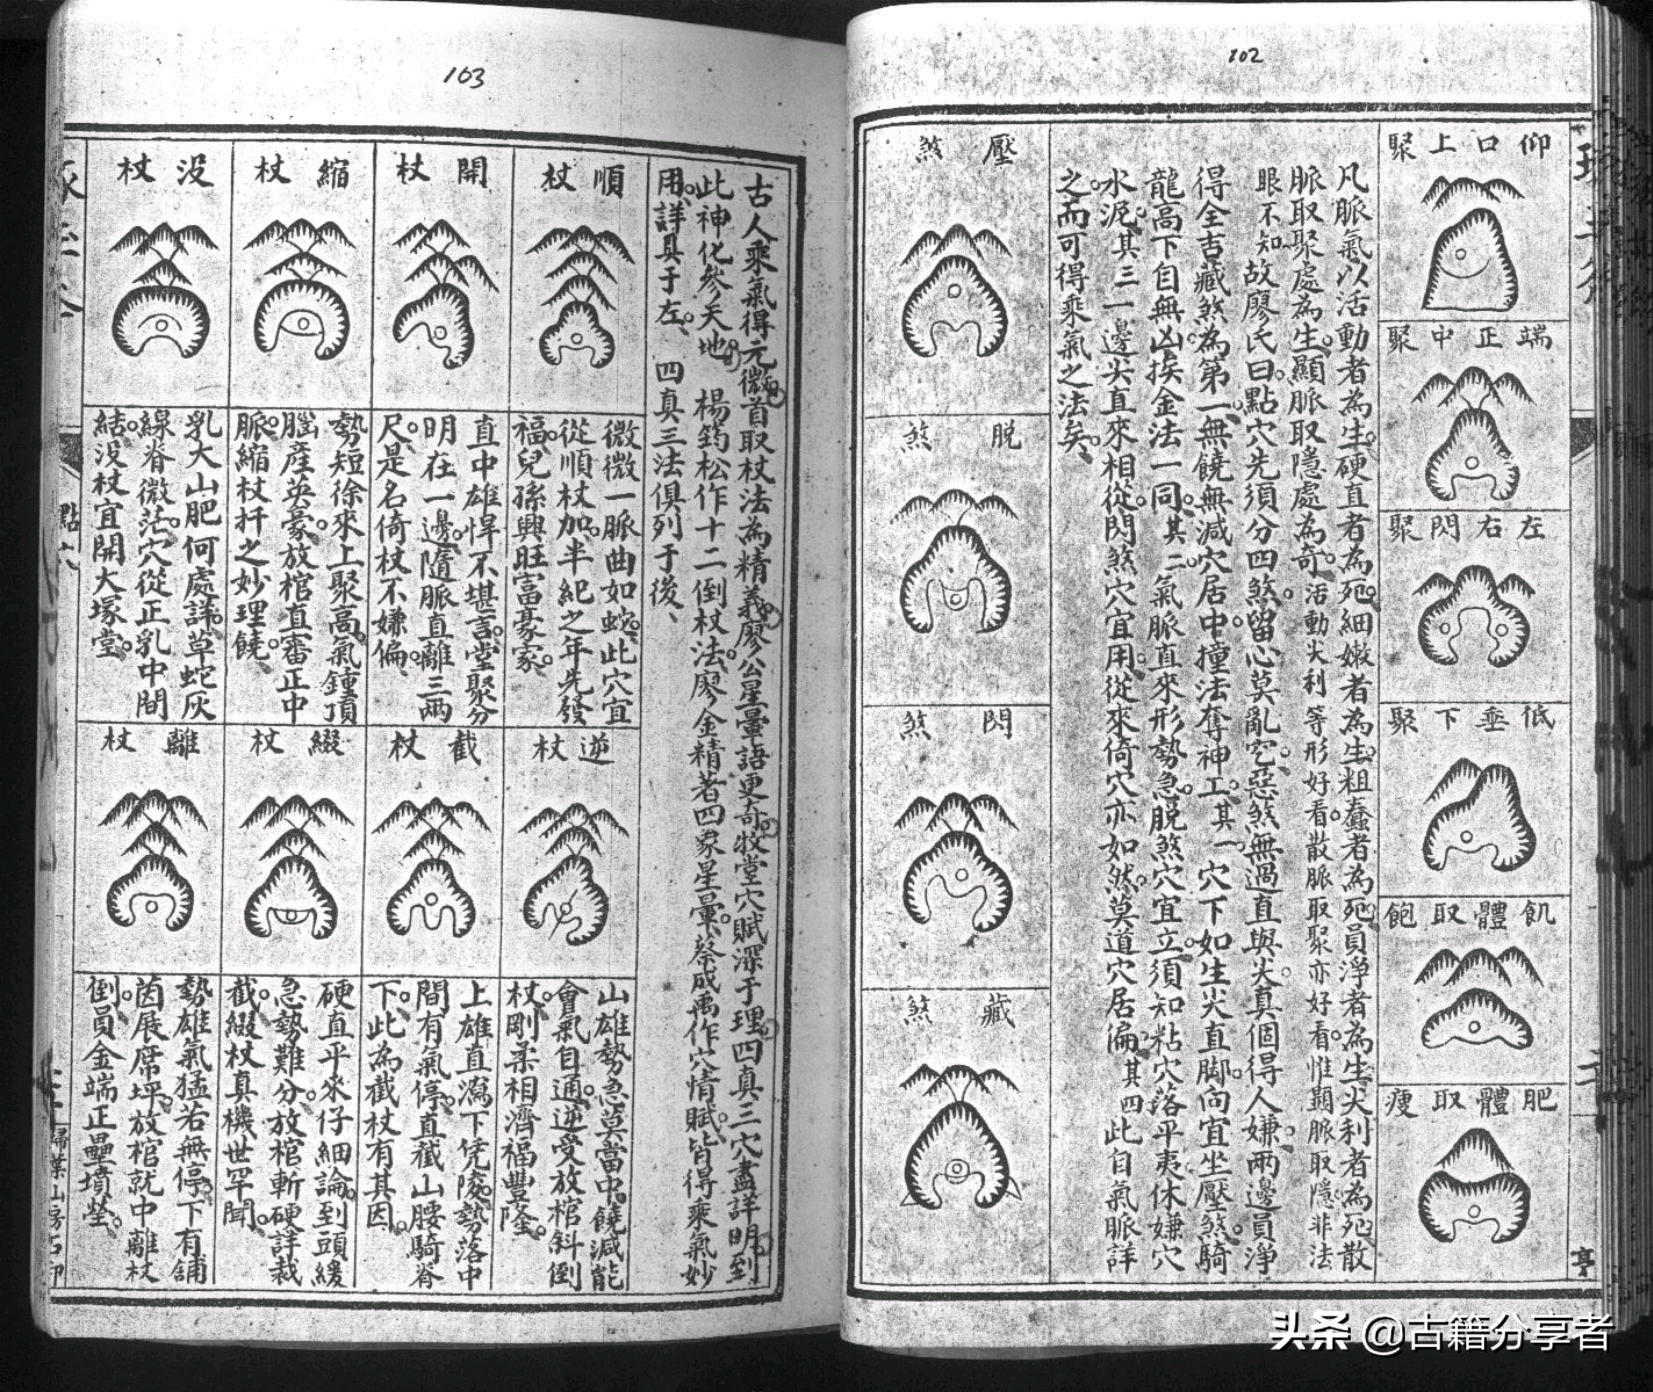 102
仰口上聚
端正中聚
左右閃聚
低垂下聚
飢體取飽
肥體取瘦
凡脈氣以活動者為生硬直者為死細嫩者為生粗蠢者為死員淨者為生尖利者為死散
脈取聚處為生顯脈取隱處為奇活動尖利等形好看散脈取聚亦好看惟顯脈取隱非法
眼不知故廖氏曰點穴先須分四煞留心莫亂它惡煞無過直與尖真個得人嫌兩邊員淨
得全吉藏煞為第一無饒無減穴居中撞法奪神工其一穴下如生尖直脚向宜坐壓煞騎
龍高下自無凶挨金法一同其二氣脈直來形勢急脱煞穴宜立須知粘穴落平夷休嫌穴
水泥其三一邊尖直來相從閃煞穴宜用從來倚穴亦如然莫道穴居偏其四此自氣脈詳
之而可得乘氣之法矣
壓煞
脱煞
閃煞
藏煞
亨
103
古人乘氣得元微首取杖法為精義廖公星暈語更奇牧堂穴賦深于理四真三穴盡詳明到
此神化參天地 楊筠松作十二倒杖法廖金精著四象星暈蔡成禹作穴情賦皆得乘氣妙
用詳具于左 四真三法俱列于後
順杖
微微一脈曲如蛇此穴宜
從順杖加半紀之年先發
福兒孫興旺富豪家
開杖
直中雄悍不堪言堂聚分
明在一邊隨脈直離三兩
尺是名倚杖不嫌偏
縮杖
勢短徐來上聚高氣鍾頂
腦產英豪放棺直審正中
脈縮杖扦之妙理饒
没杖
乳大山肥何處詳草蛇灰
線脊微茫穴從正乳中間
結没杖宜開大塚堂
逆杖
山雄勢急莫當中饒減能
會氣自通逆受放棺斜倒
杖剛柔相濟福豐隆
截杖
上雄直瀉下凭陵勢落中
間有氣停直截山腰騎脊
下此為截杖有其因
綴杖
硬直平來仔細論到頭緩
急勢難分放棺斬硬詳裁
截綴杖真機世罕聞
離杖
勢雄氣猛若無停下有舖
茵展席坪放棺就中離杖
倒員金端正壘墳塋
掃葉山房石印
头条 @古籍分享者